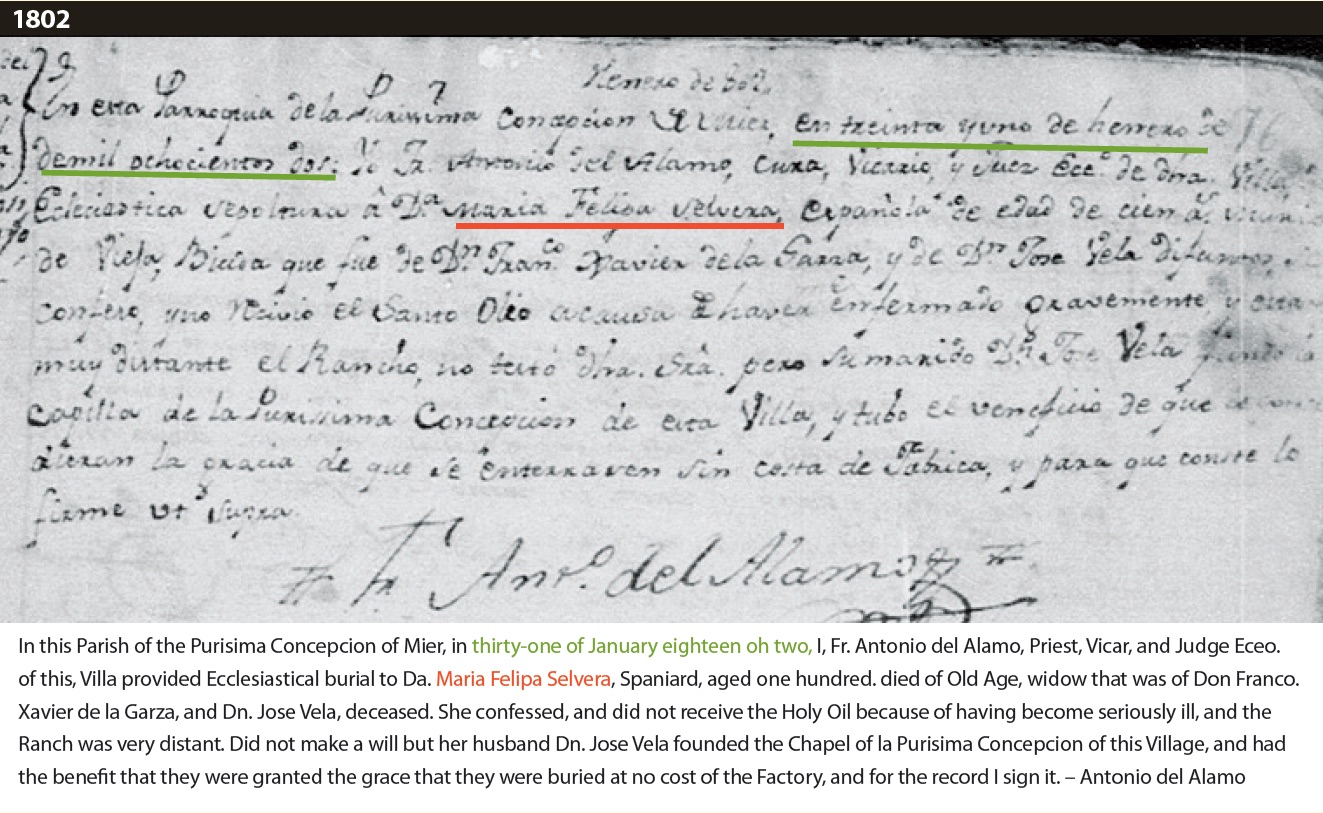 1802
Henero de 802,
En esta Parroquia de la Purissima Concepcion de Mier, en treinta y uno de henero de
de mil ochocientos dos: Yo Fr. Antonio del Alamo, Cura, Vicario, y Juez Ecco. de dha. Villa
Eclesiastica sepoltura â Da. Maria Felipa Selvera, Española de edad de cien as.
de Vieja, Biuda que fue de Dn. Franco. Xavier de la Garza, y de Dn. Jose Vela difuntos,
confeso, y no recivio el Santo Oleo a causa de haver enfermado gravemente y estar
muy distante el Rancho, no testó dha. Sra. pero su marido Dn. Jose Vela
capilla de la Purissima Concepcion de esta Villa, y tubo el veneficio de que
dieran la gracia de que se enterraven sin costa de Fabrica, y para que conste lo
firme ut supra.
Fr. Anto. del Alamo
In this Parish of the Purisima Concepcion of Mier, in thirty-one of January eighteen oh two, I, Fr. Antonio del Alamo, Priest, Vicar, and Judge Eceo.
of this, Villa provided Ecclesiastical burial to Da. Maria Felipa Selvera, Spaniard, aged one hundred. died of Old Age, widow that was of Don Franco.
Xavier de la Garza, and Dn. Jose Vela, deceased. She confessed, and did not receive the Holy Oil because of having become seriously ill, and the
Ranch was very distant. Did not make a will but her husband Dn. Jose Vela founded the Chapel of la Purisima Concepcion of this Village, and had
the benefit that they were granted the grace that they were buried at no cost of the Factory, and for the record I sign it. – Antonio del Alamo